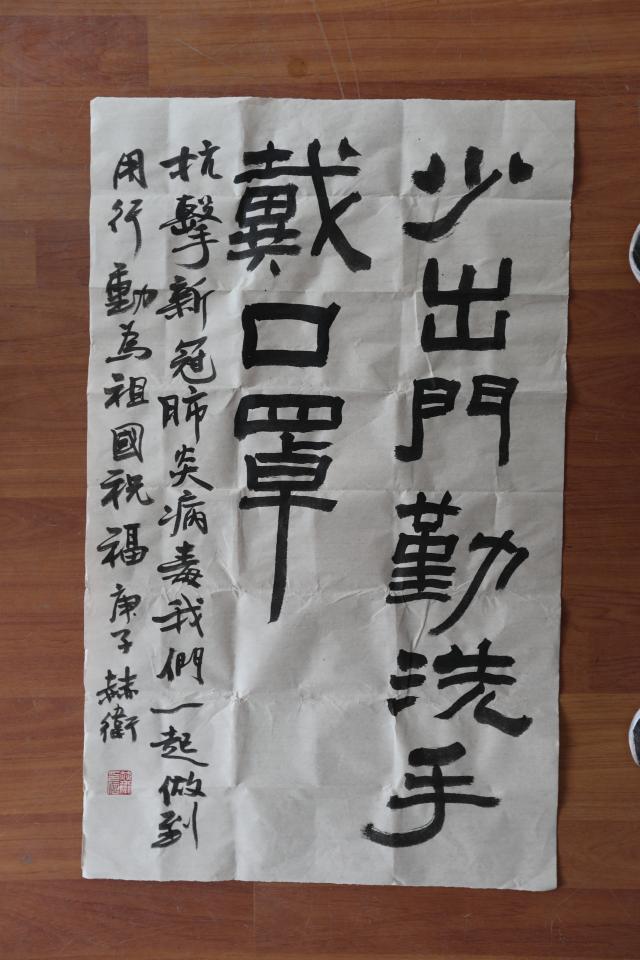 少出門勤洗手
戴口罩
抗擊新冠肺炎病毒我們一起做到
用行動為祖國祝福 庚子 赫衛